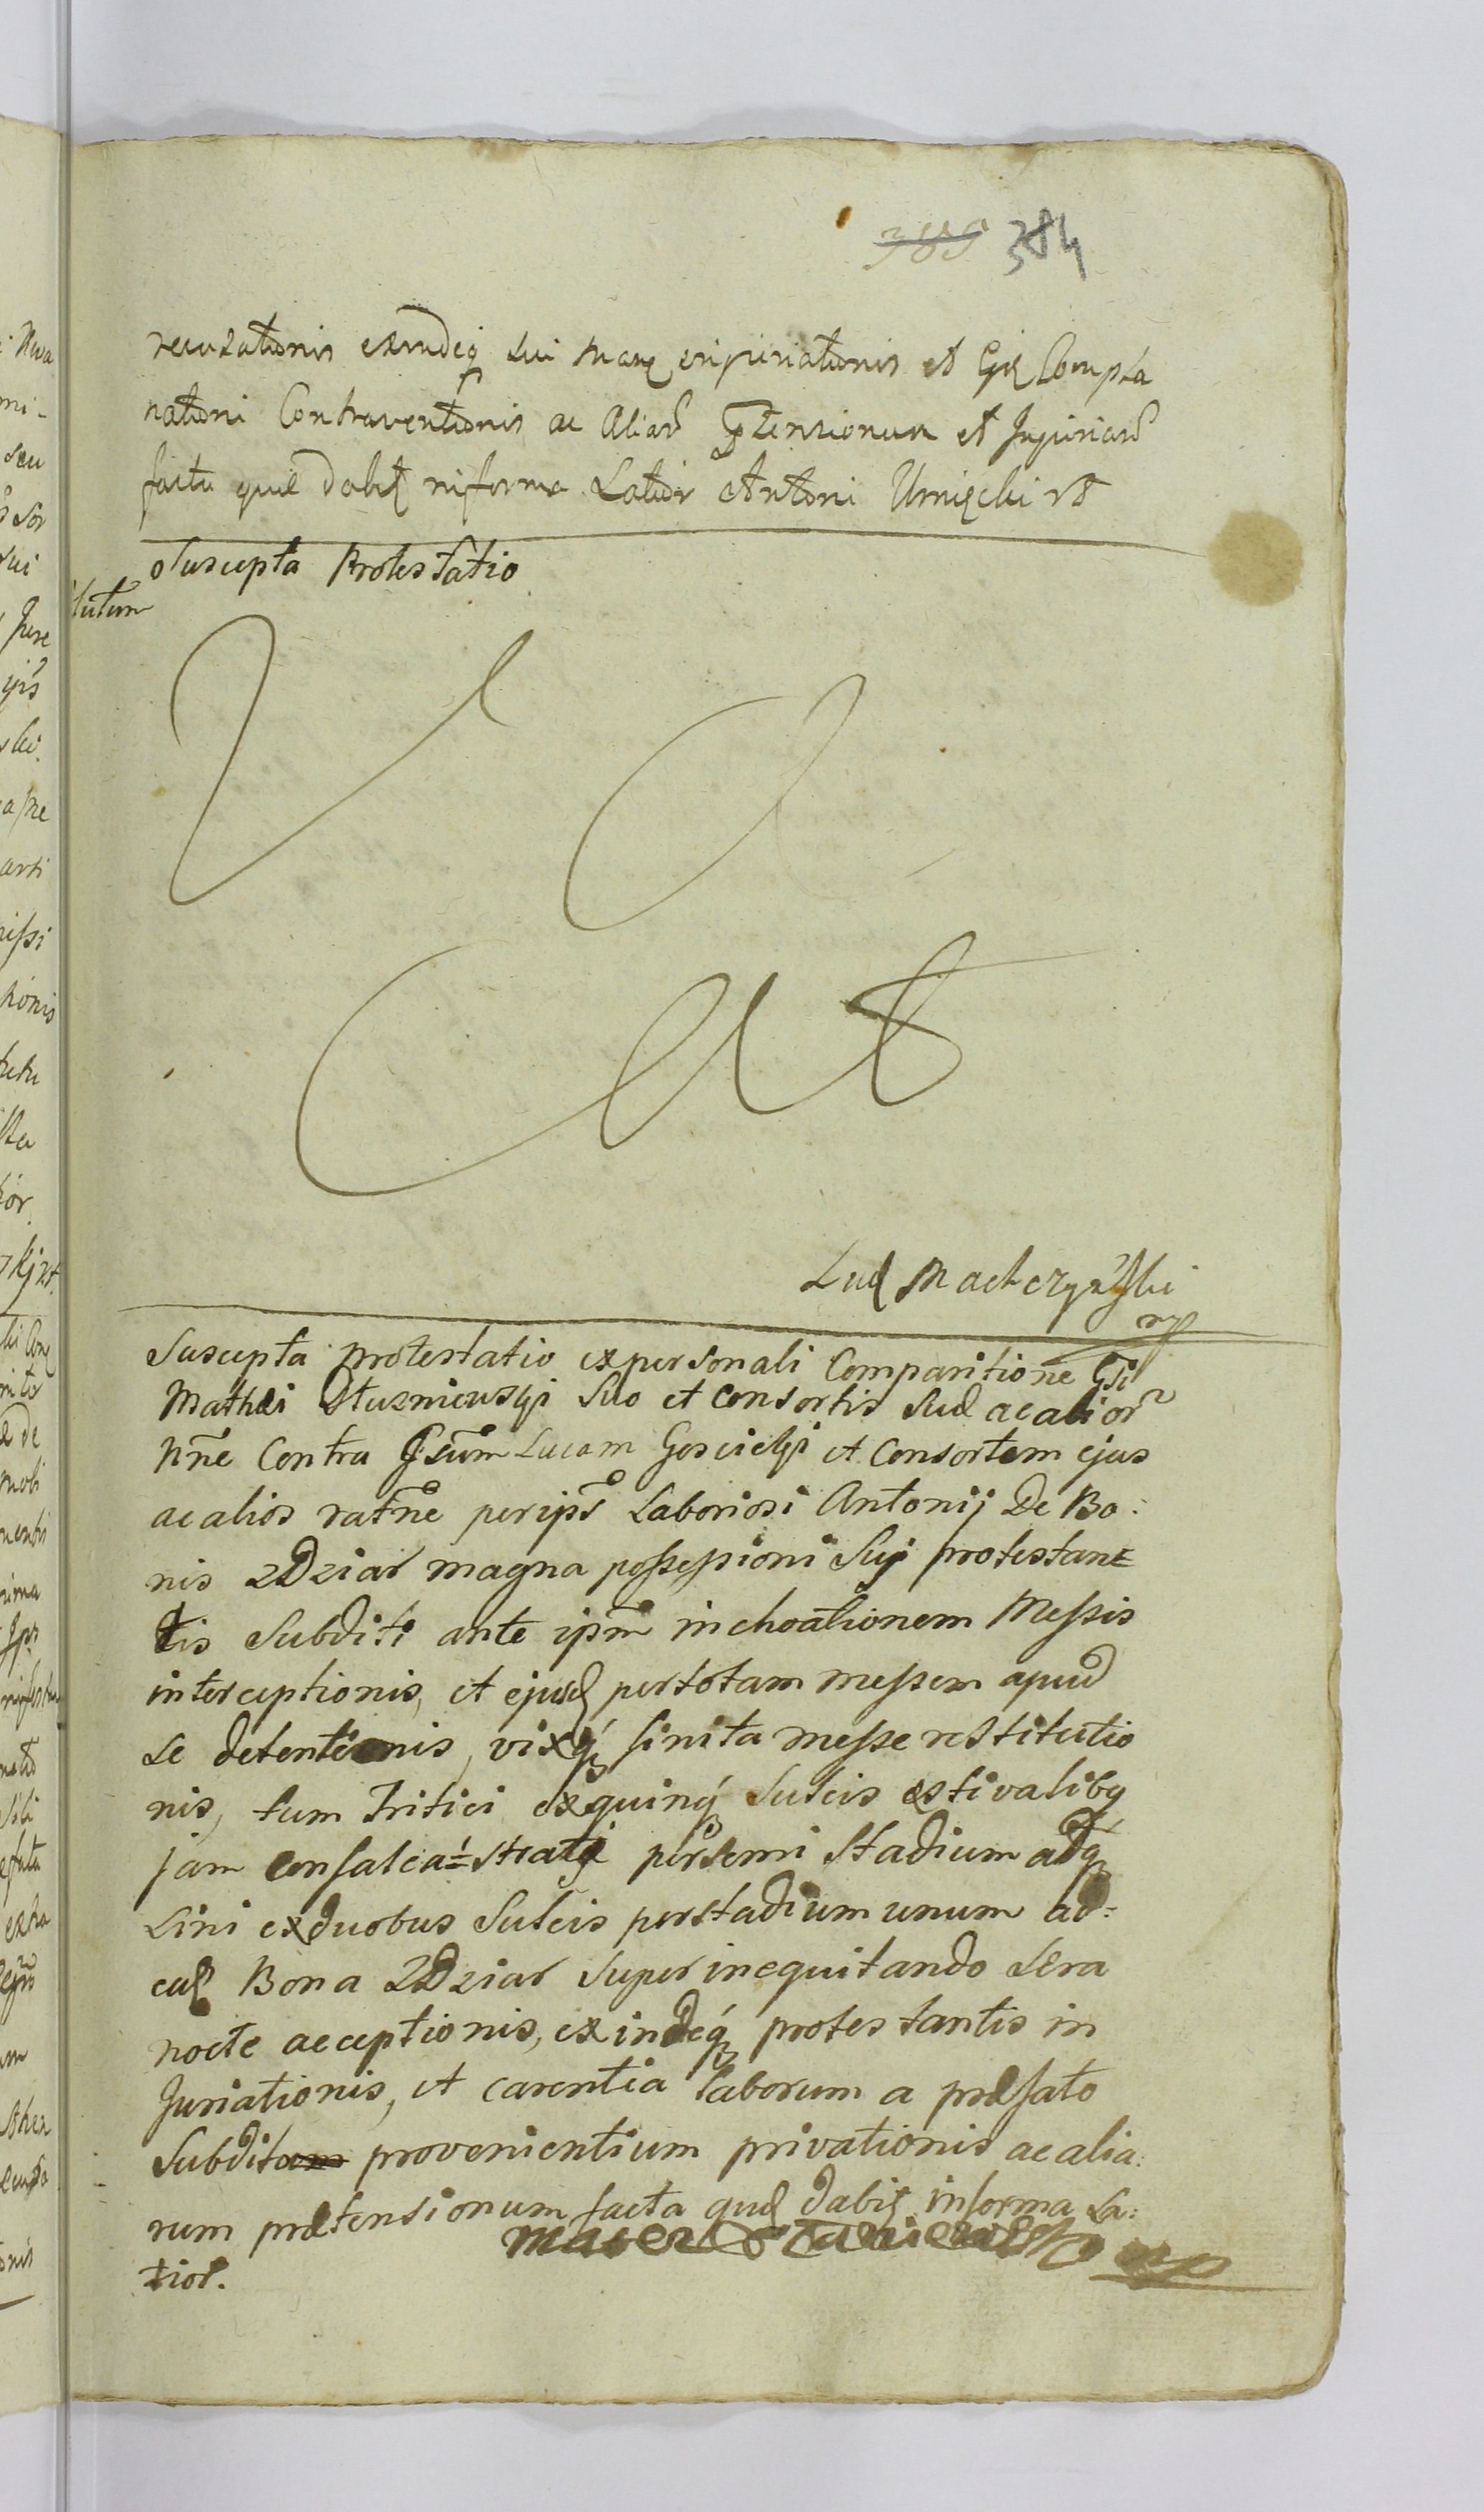 385 384
recusationis exindeq sui
nationi Contraventionis ac Aliar Ptensionum et Injuriar
facta que dabit informa Latior Antoni Umięcki
Suscepta Protestatio
Vacat
Lud Machczyński
mp
Suscepta protestatio ex personali Comparitione Gsi
Mathei Dłuzniewski Suo et Consortis Suæ ac alior
nne Contra Gsum Lucam Goscicki et Consortem ejus
ac alios ratne per ips Laboriosi Antonij De Bo:
nis ZDziar magna possessioni Suj protestan
tis Subditi ante ipm inchoationem Messis
interceptionis, et ejusd per totam messem apud
se detentionis, vixq finita messe restitutio
nis, tum Tritici ex quinq Sulcis estivalibq
jam consalca= strati per semi Stadium adq
Lini ex duobus Sulcis per stadium unum ad=
eaq Bona ZDziar super inequitando Sera
nocte acceptionis, exindeq protestantis in
Juriationis, et carentia laborum a præfato
Subdito provenientium privationis ac alia:
rum prætensionum facta quæ dabit informa La:
tior.